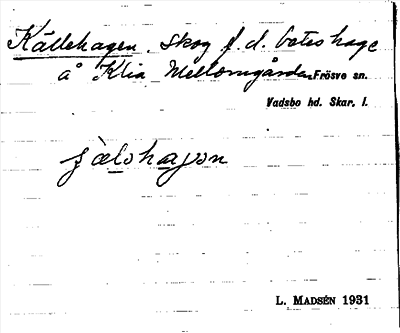 Källehagen. skog f. d. beteshage
å Klia Mellomgården Frösve sn.
Vadsbo hd. Skar. l.
L. MADSÉN 1931